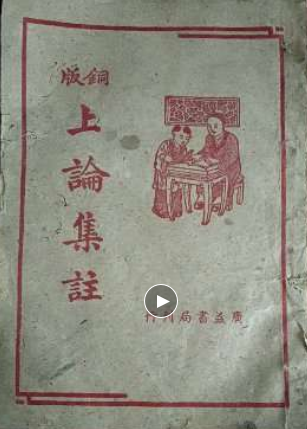 銅版
上論集註
廣益書局刊行